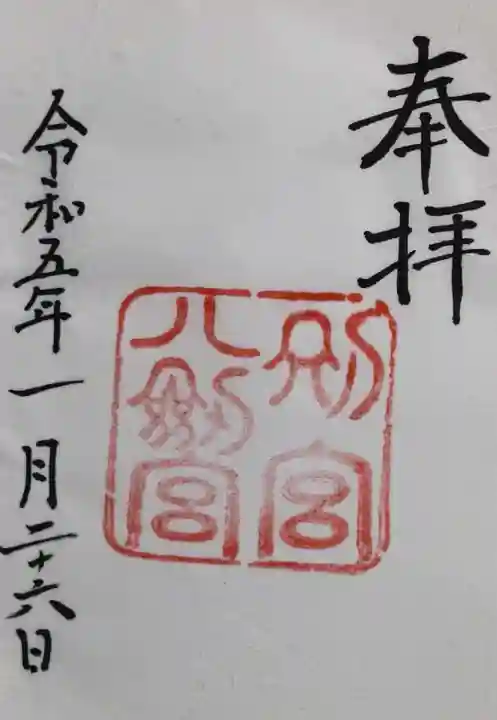 奉拝
別宮
八剱宮
令和五年一月二十六日